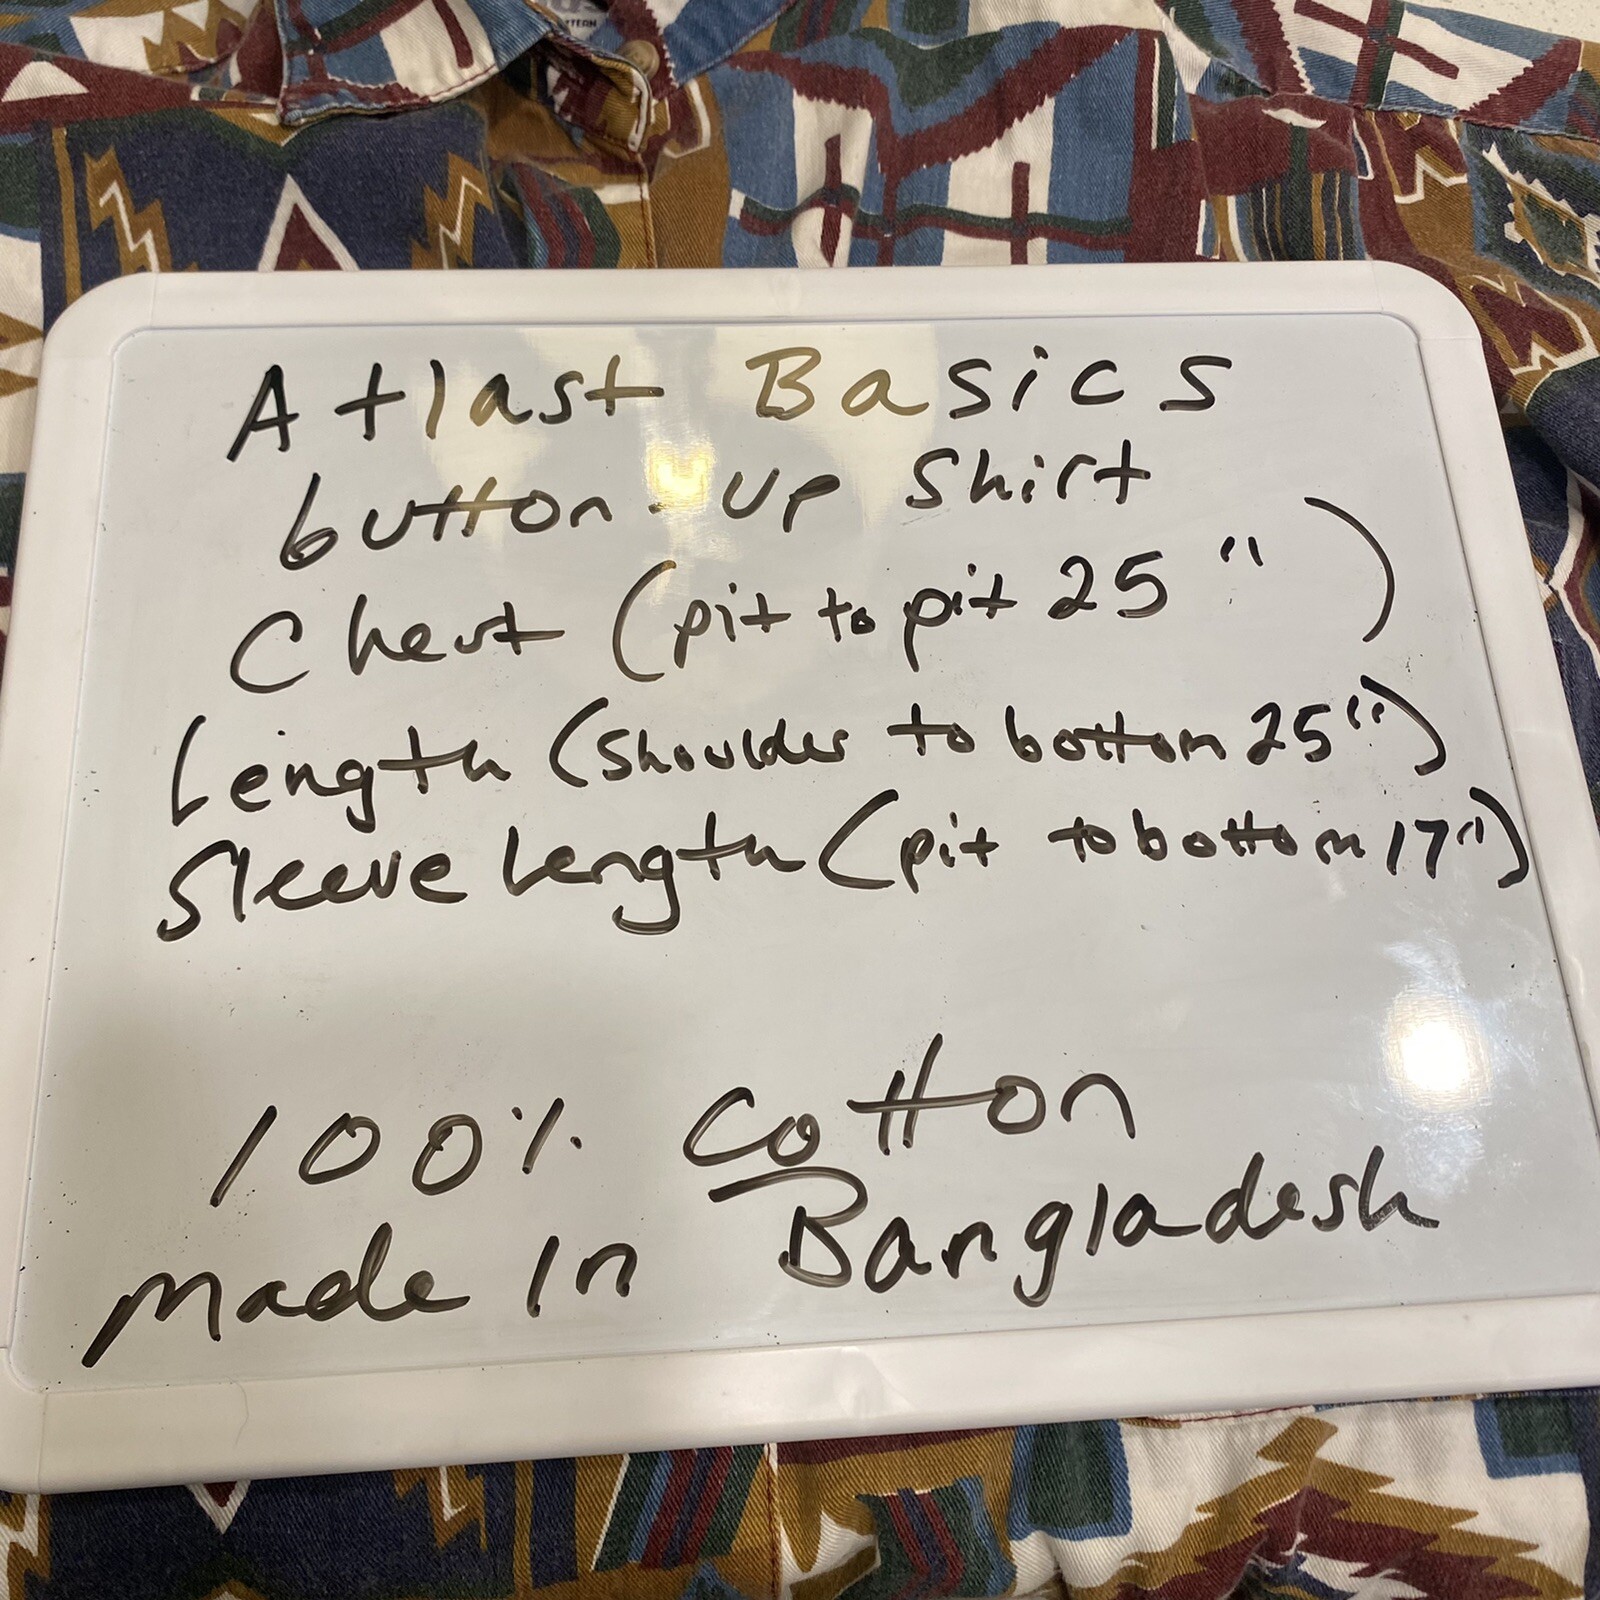 TTERN
Atlast Basics
button-up shirt
Chest (pit to pit 25")
Length (shoulder to bottom 25")
Sleeve Length (pit to bottom 17")
100% Cotton
Made In Bangladesh